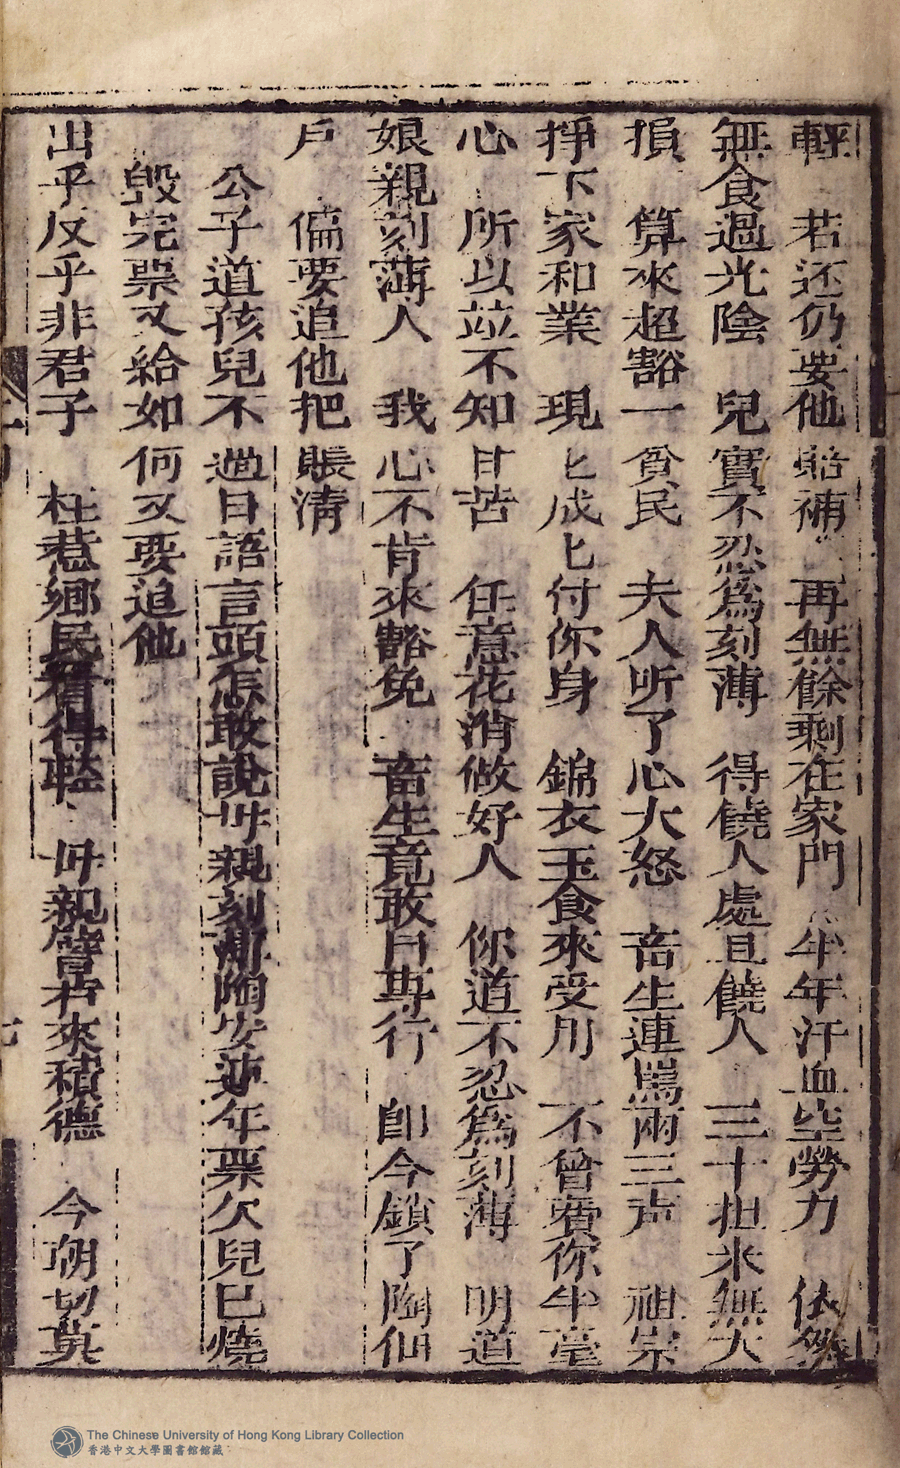 輕　若还仍要他賠補　再無餘剩在家門　半年汗血空勞力　依然
無食過光陰　兒實不忍為刻薄　得饒人處且饒人　三十担米無大
損　算來超豁一貧民　夫人听了心大怒　畜生連罵兩三声　祖宗
掙下家和業　現匕成匕付你身　錦衣玉食來受用　不曾費你半毫
心　所以並不知甘苦　任意花消做好人　你道不忍為刻薄　明道
娘親刻薄人　我心不肯來豁免　畜生竟敢自專行　卽今鎖了陶仙
戶　偏要追他把賬淸
公子道孩兒不過日語言頭怎敢說母親刻那陶安連年票欠兒已燒
毀完票又給如何又要追他
出乎反乎非君子　枉惹鄉民看得輕　母親譬如來積德　今朝切莫
七
The Chinese University of Hong Kong Library Collection
香港中文大學圖書館館藏